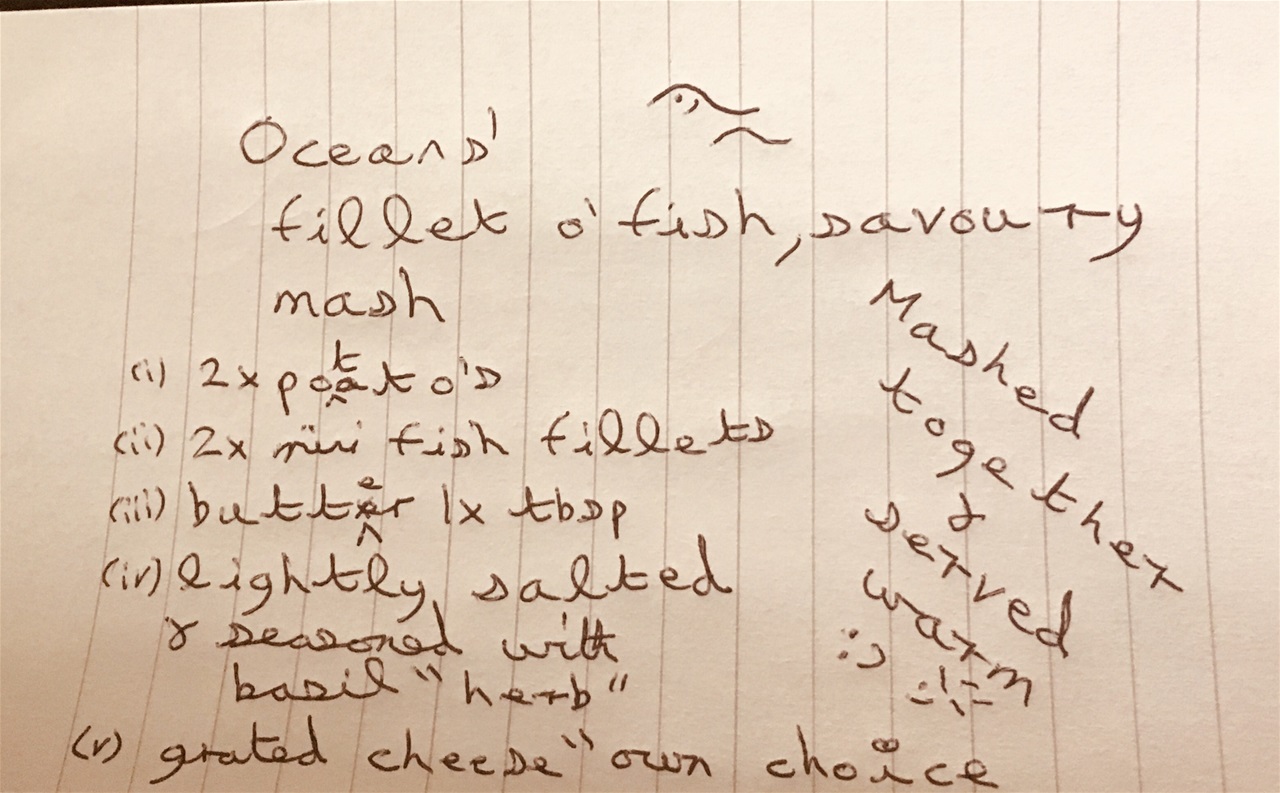 Oceans'
fillet o' fish, savoury
mash
(i) 2x potato's
(ii) 2x mini fish fillets
(iii) butter 1x tbsp
(iv) lightly salted
& seasoned with
basil "herb"
(v) grated cheese "own choice
Mashed
together
&
served
warm